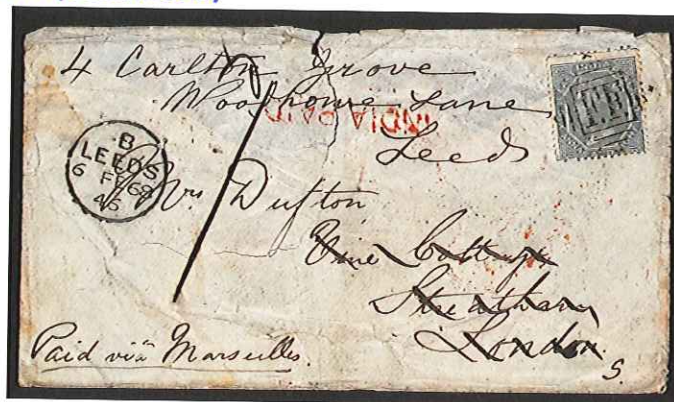 4 Carlton Grove
Woodhouse Lane
Leeds
INDIA PAID
B
LEEDS
6 FE 68
45
Mrs Dufton
Vine Cottage
Streatham
London
S.
Paid via Marseilles.